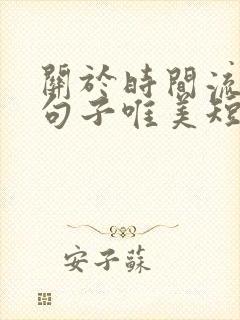 關於時間流
句子唯美短
安子蘇